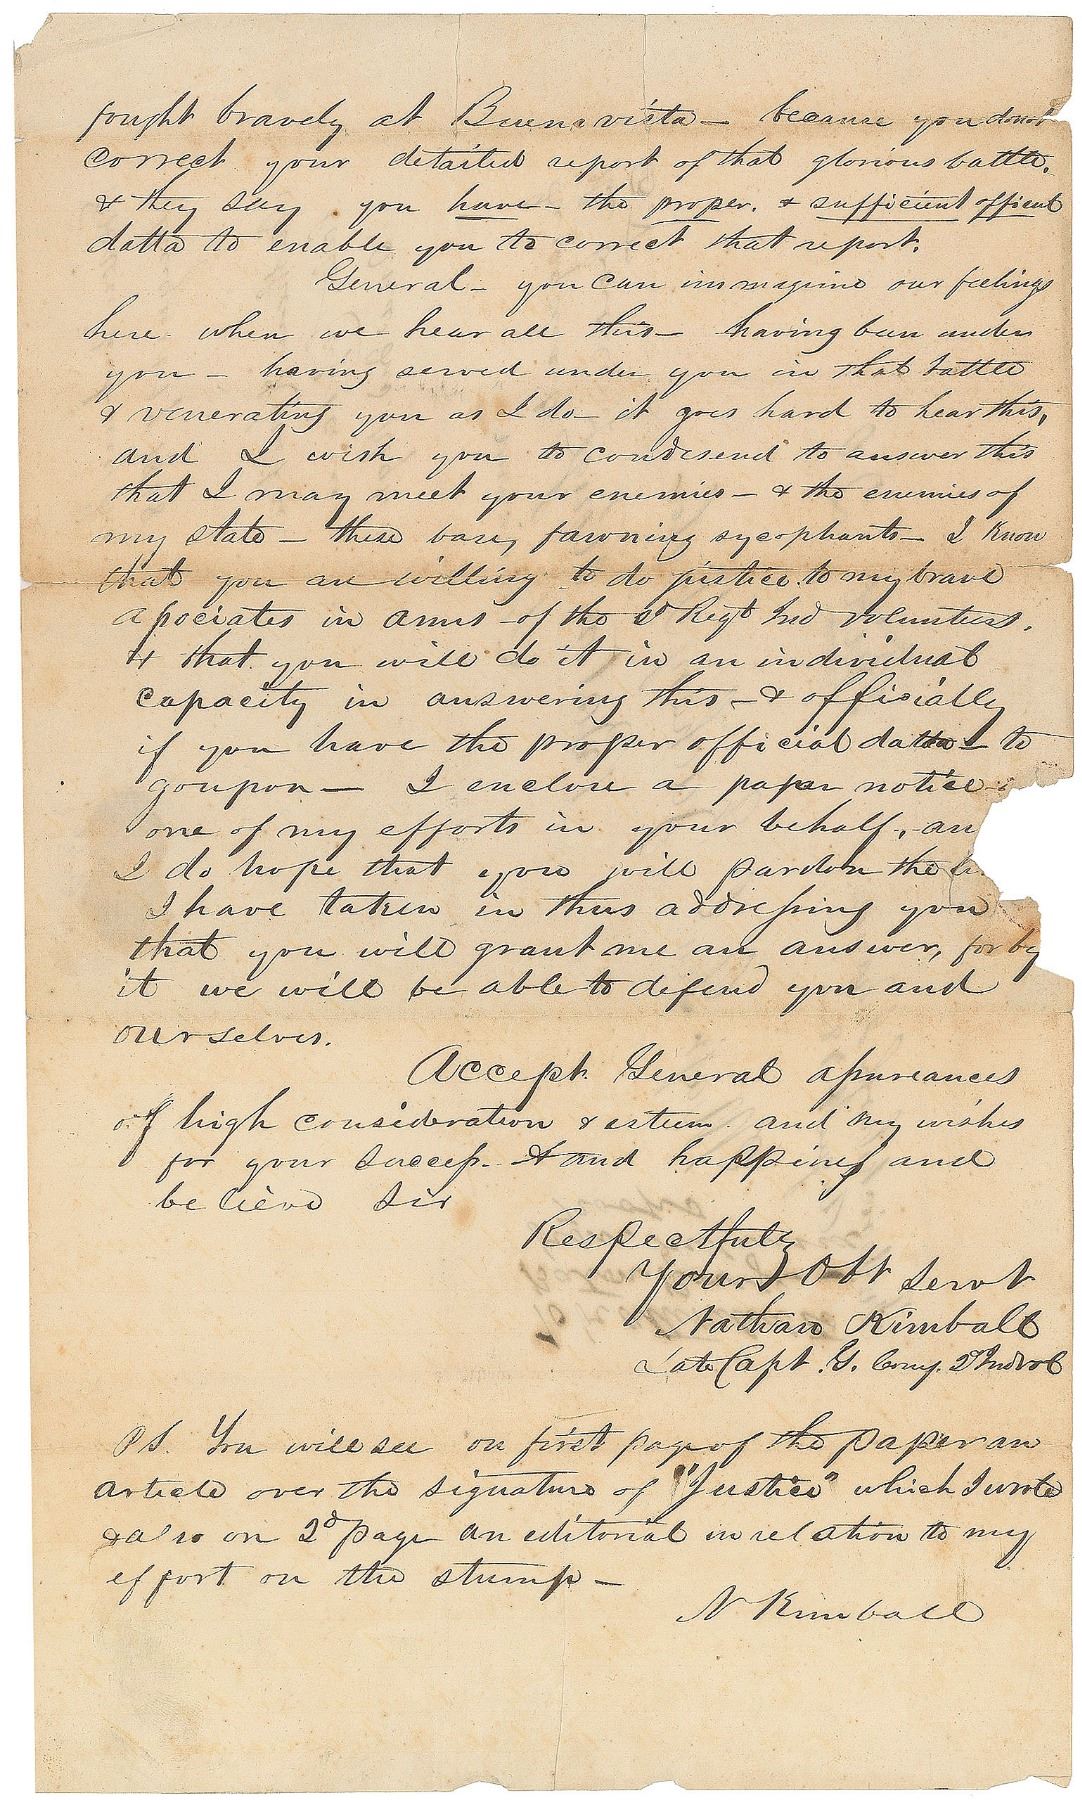 fought bravely at Buena vista — because you donot
correct your detailed report of that glorious battle.
& they say you have — the proper. & sufficient official
datta to enable you to correct that report.
General — you can immagine our feelings
here when we hear all this — having been under
you — having served under you in that battle
& venerating you as I do — it goes hard to hear this,
and I wish you to condesend to answer this
that I may meet your enemies — & the enemies of
my state — these base, fawning sycophants — I know
that you are willing to do justice to my brave
associates in arms — of the 2d Regt Ind Volunteers.
& that you will do it in an individual
capacity in answering this — & officially
if you have the proper official datta — to
goupon — I enclose a paper notice
one of my efforts in your behalf, an
I do hope that you will pardon the
I have taken in thus addressing you
that you will grant me an answer, for by
it we will be able to defend you and
ourselves.
Accept General assureances
of high consideration & esteem and my wishes
for your success. & and happiness and
believe Sir
Respectfully
Your Obt Servt
Nathan Kimball
Late Capt. G. Comy. 2d Ind vol
PS. You will see on first page of the paper an
article over the signature of "Justice" which I wrote
& also on 2d page an editorial in relation to my
effort on the stump —
N Kimball